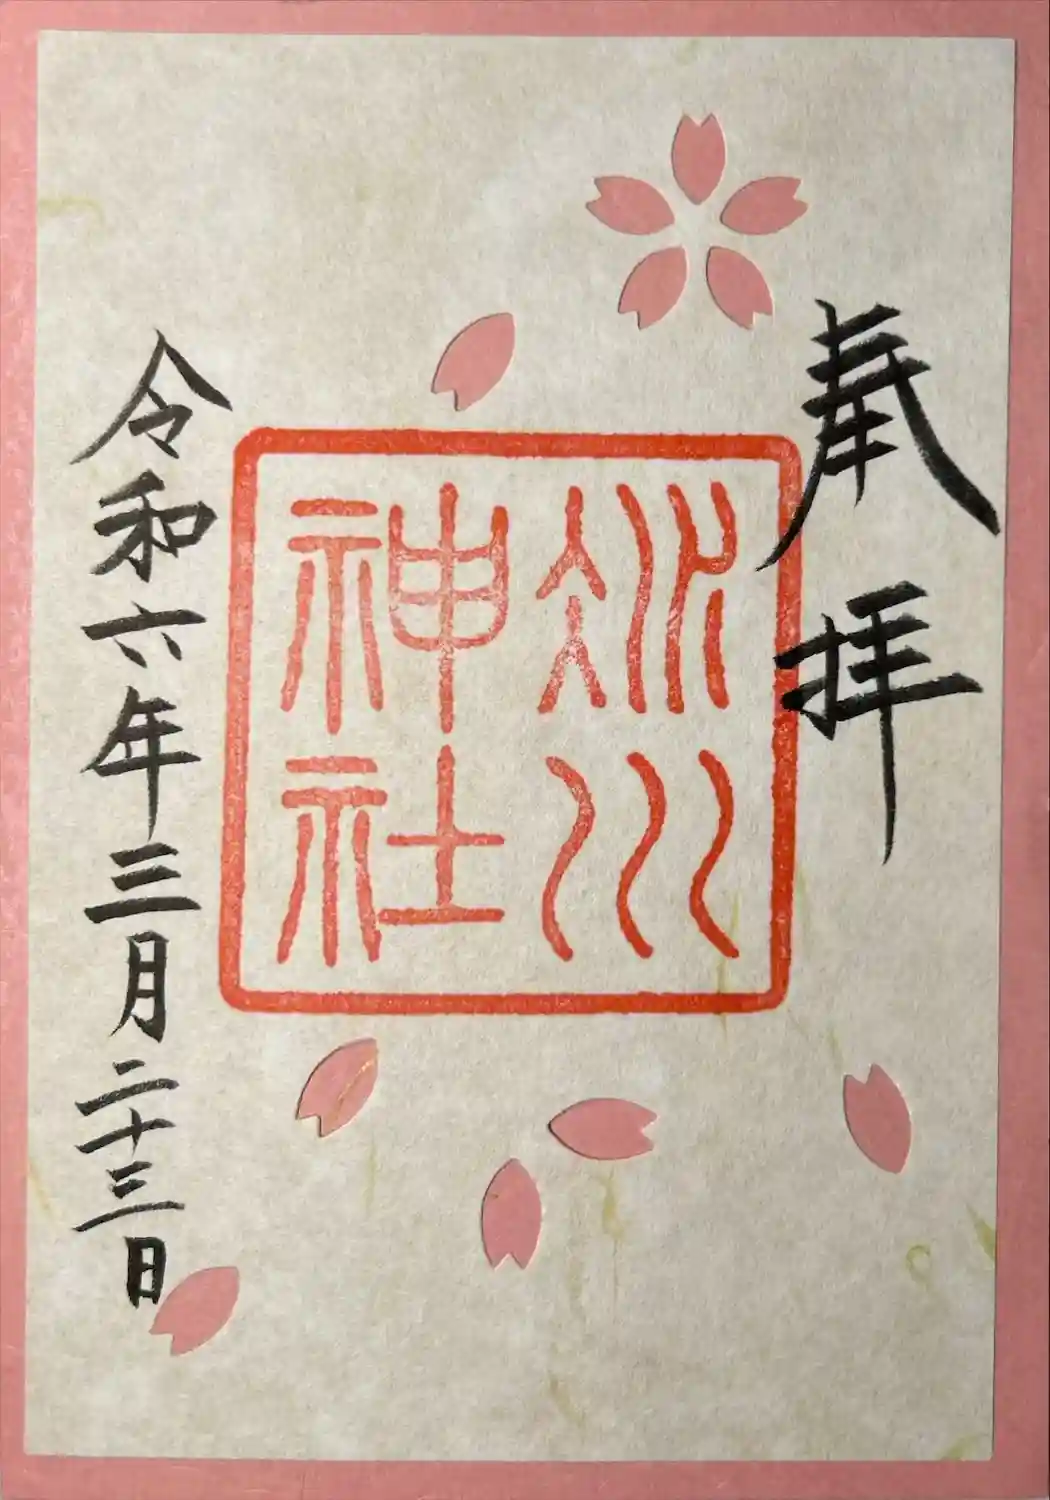 奉拝
冰川
神社
令和六年三月二十三日